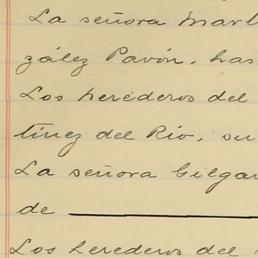 La señora Mart
zález Pavón, has
Los herederos del
tínez del Rio, su
La señora Gilgar
de
Los herederos del